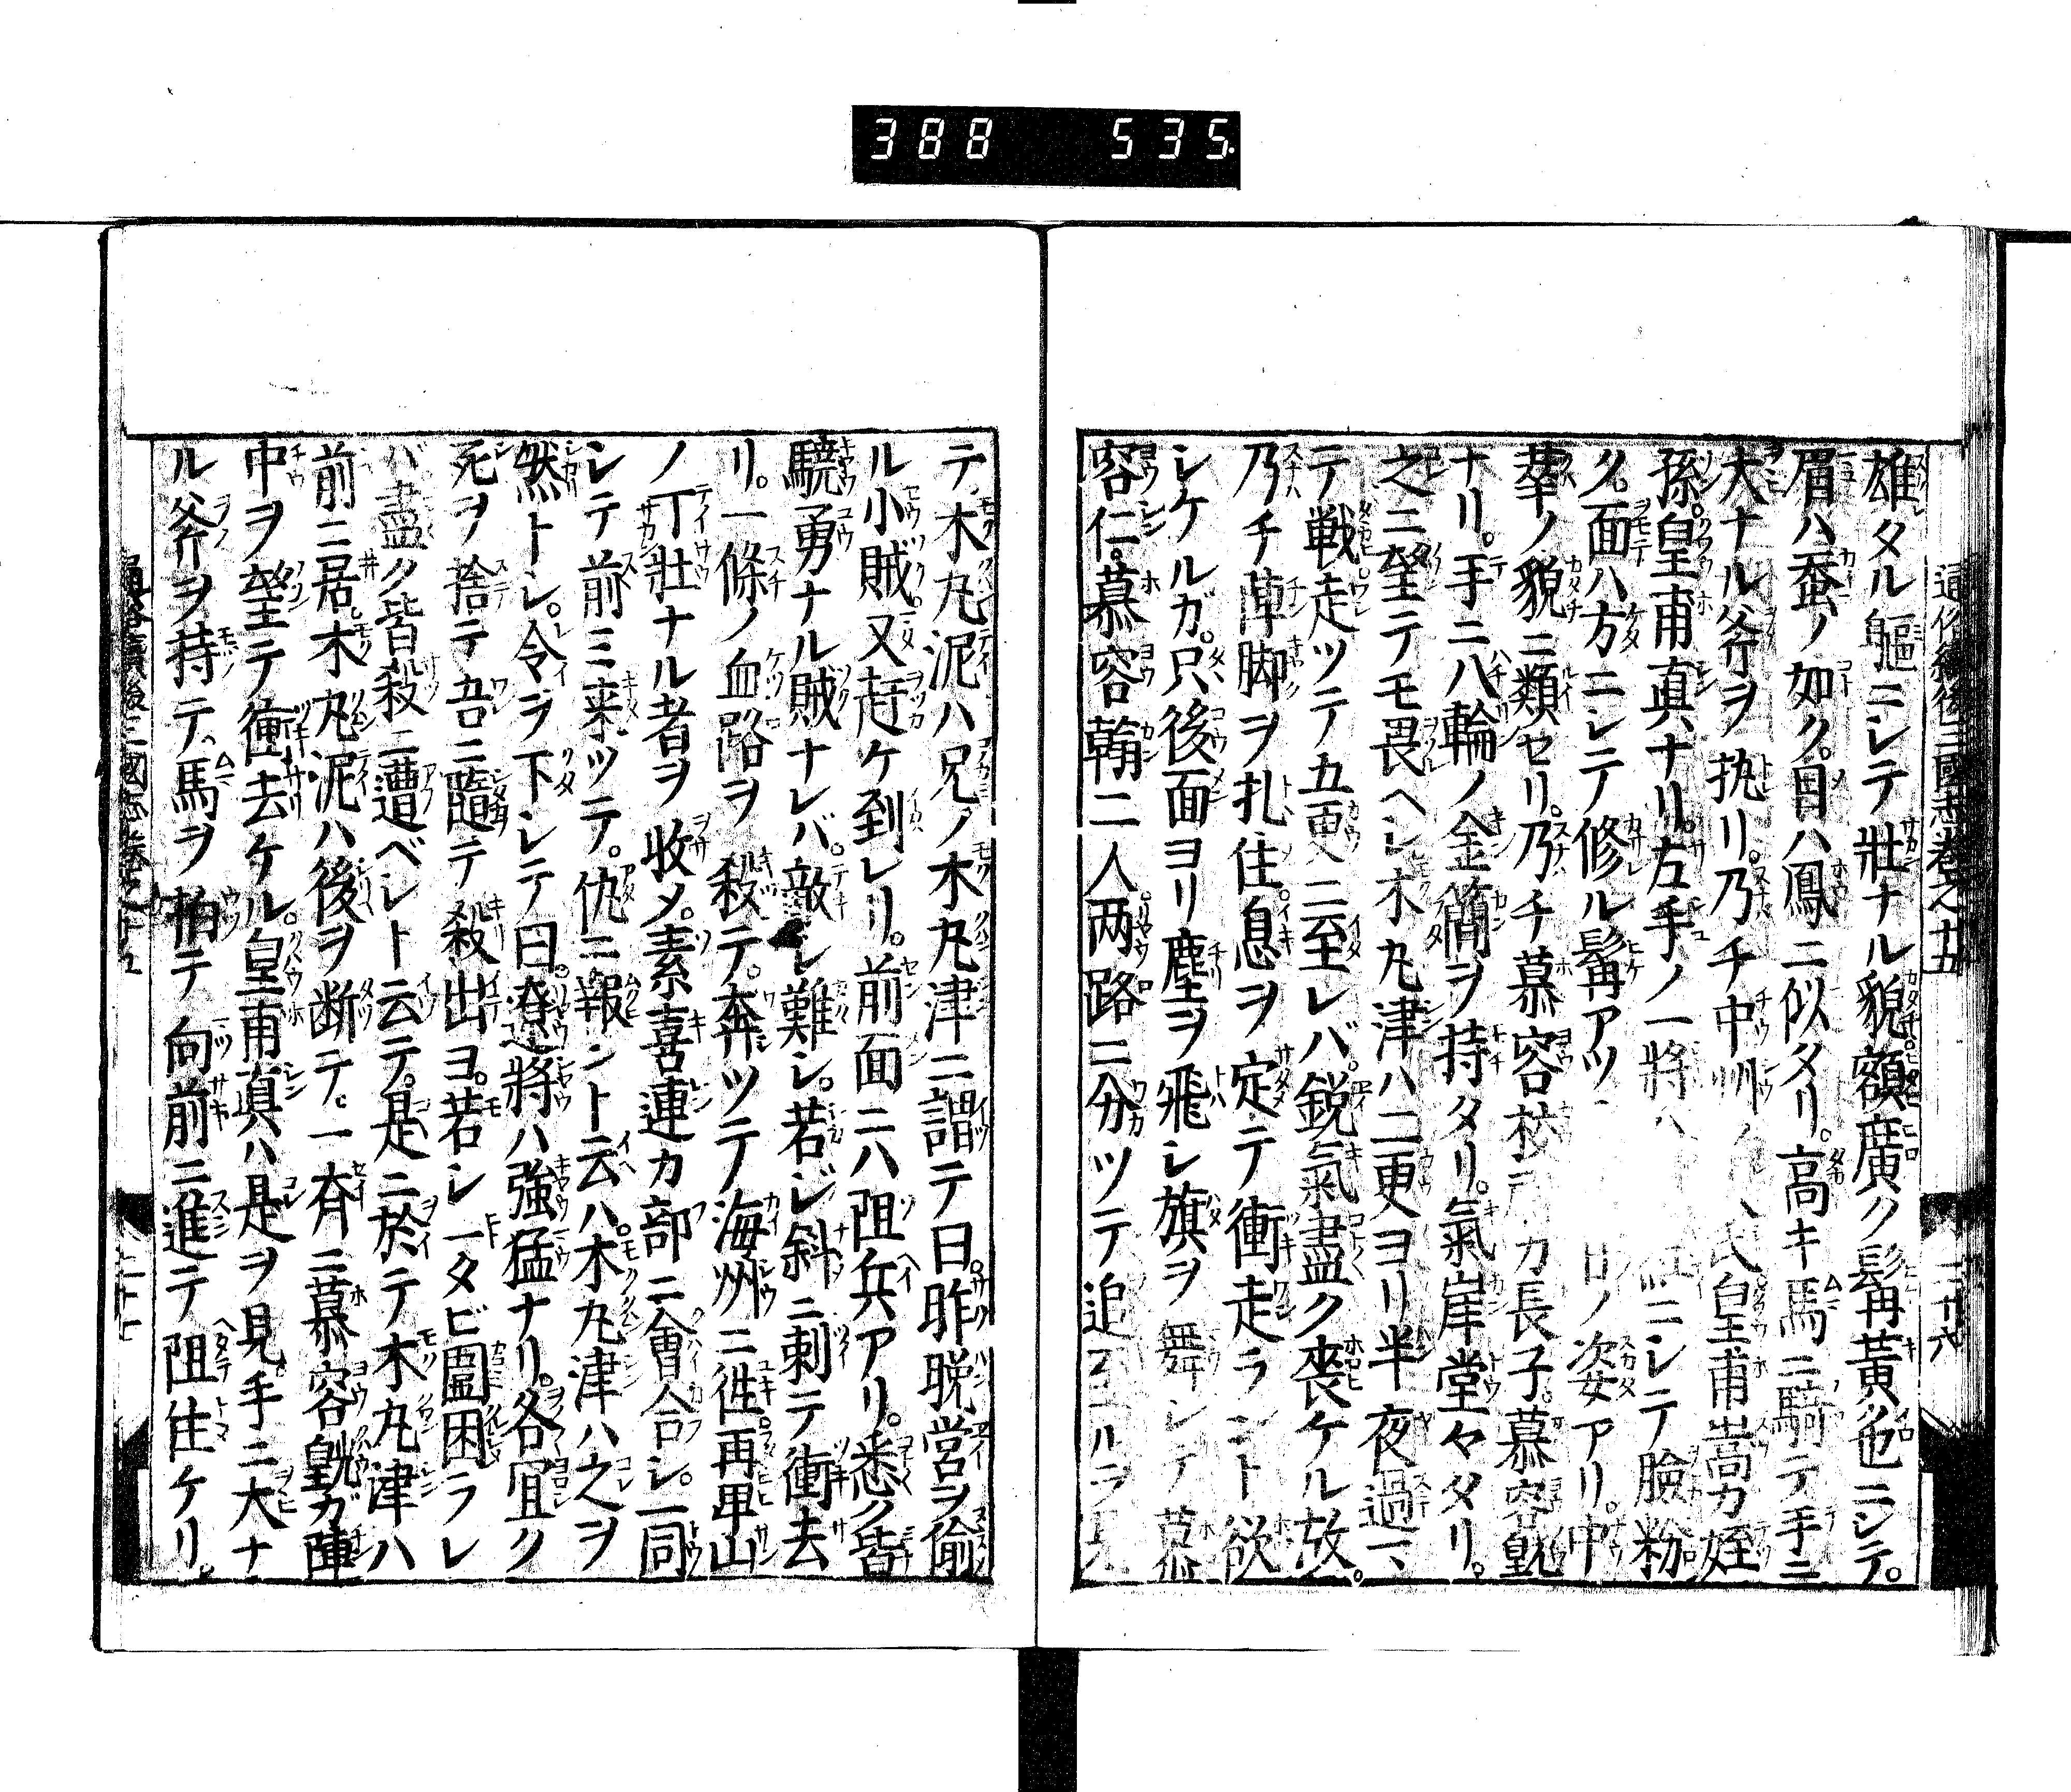 388 535.
通俗續後三國志卷之十五
雄タル軀ニシテ壯ナル貌額廣ク髯黃色ニシテ。
眉ハ蚕ノ如ク。目ハ鳳ニ似タリ。高キ馬ニ騎テ手ニ
大ナル斧ヲ執リ。乃チ中州 皇甫嵩カ姪
孫。皇甫真ナリ。左手ノ一將ハ ニシテ臉粉
ク。面ハ方ニシテ修ル髯アツ ノ姿アリ。中
ノ貌ニ類セリ。乃チ慕容 カ長子。慕容皝
ナリ。手ニ八輪ノ金簡ヲ持タリ。氣岸堂々タリ。
之ニ望テモ畏ヘシ木丸津ハ二更ヨリ半夜過
テ戰走ツテ五更ニ至レバ。鋭氣盡ク喪ケル故。
乃チ陣脚ヲ扎住息ヲ定テ衝走ラント欲
シケルガ。只後面ヨリ塵ヲ飛シ旗ヲ舞シテ慕
容仁。慕容翰二人両路ニ分ツテ追
テ木丸泥ハ兄ノ木丸津ニ謂テ曰。昨晩営ヲ偷
ル小賊。又赶ケ到レリ。前面ニハ阻兵アリ。悉ク皆
驍勇ナル賊ナレバ。敵シ難シ。若ジ斜ニ刺テ衝去
リ。一條ノ血路ヲ殺テ。奔ツテ海州ニ徃。再卑山
ノ丁壯ナル者ヲ收メ。素喜連カ部ニ會合シ。一同
シテ前ミ来ツテ。仇ニ報ント云ハ。木丸津ハ之ヲ
然トシ。令ヲ下シテ曰。遼將ハ強猛ナリ。各宜ク
死ヲ捨テ吾ニ隨テ殺出ヨ。若シ一タビ圍困ラレ
バ盡ク皆殺ニ遭ベシト云テ。是ニ於テ木丸津ハ
前ニ居。木丸泥ハ後ヲ断テ。一斉ニ慕容皝ガ陣
中ヲ望テ衝去ケル。皇甫真ハ是ヲ見。手ニ大ナ
ル斧ヲ持テ、馬ヲ拍テ向前ニ進テ阻住ケリ。